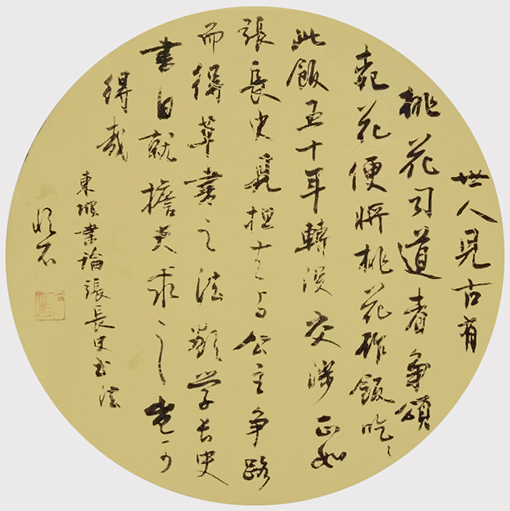 世人見古有
桃花道者爭頌
桃花便將桃花作飯吃〻
此飯五十年轉沒交涉正如
張長史見擔夫与公主爭路
而得草書之法欲學長史
書日就擔夫求之豈可
得哉
東坡論張長史書法